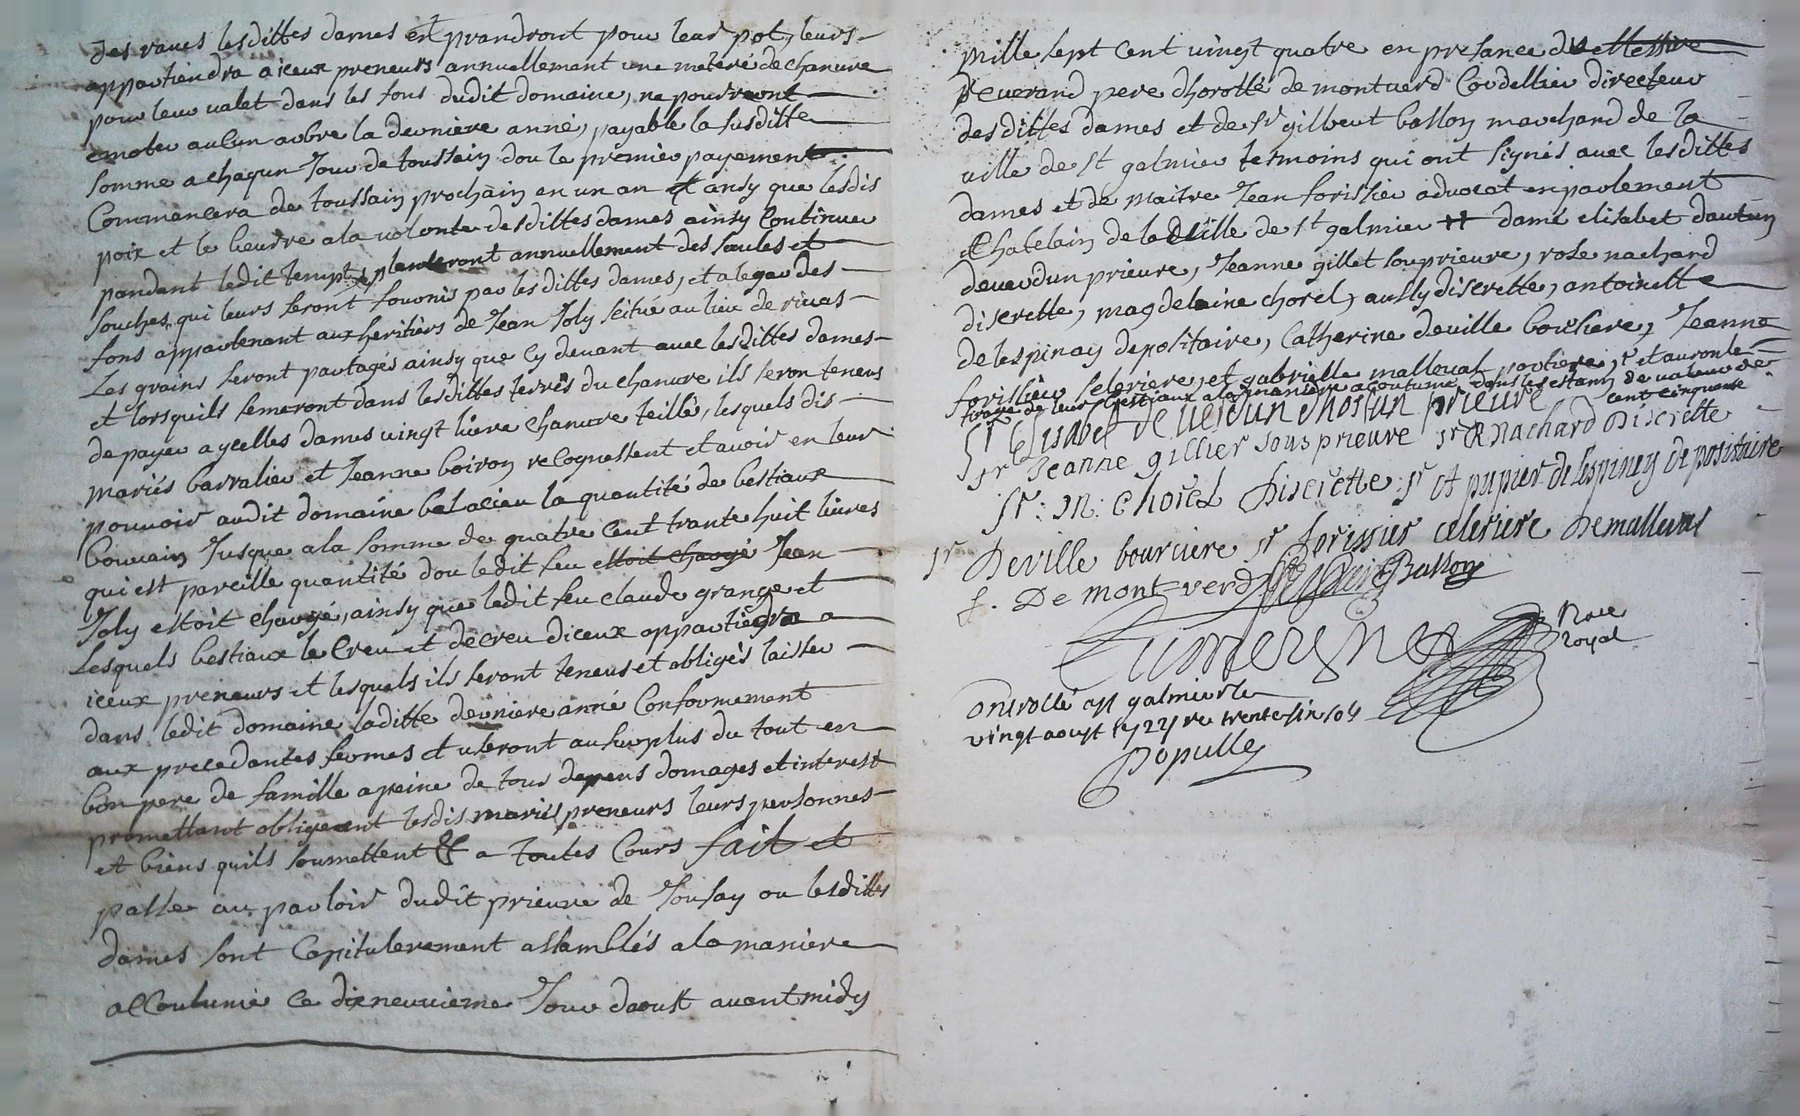 des raves lesdittes dames en prandront pour leur pot, leurs
appartiendra a iceux preneurs annuellement une metere de chanvre
pour leur valet dans les fons dudit domaine, ne pourront
emoter aucun arbre la derniere anné, payable la susditte
somme a chaqun Jour de toussain dou le premier payement
Commencera de toussain prochain en un an et ansy que lesdis
poix et le beurre a la volonte desdittes dames ainsy Continuer
pandant ledit tempts, planteront annuellement des saules et
souches qui leurs seront fournis par les dittes dames, et a legar des
fons appartenant aux heritiers de Jean Joly scitué au lieu de rivas
Les grains seront partagés ainsy que cy devant avec lesdittes dames
et lorsquils semeront dans lesdittes terres du chanvre ils seron teneus
de payer a ycelles dames vingt livre chanvre teillé, lesquels dis
mariés barralier et Jeanne boiron recognessent et avoir en leur
pouvoir audit domaine de la quantité de bestiaux
bouvain Jusque a la somme de quatre cent trante huit livres
qui est pareille quantité dou ledit feu estoit chargé Jean
Joly estoit chargé, ainsy que ledit feu claude grange et
Lesquels bestiaux le Creu et decreu diceux appartiedra a
iceux preneurs et lesquels ils seront teneus et obligés laisser
dans ledit domaine laditte derniere anné Conformement
aux precedantes fermes et useront au surplus du tout en
bon pere de famille a peine de tous depens domages et interest
promettant obligeant lesdis mariés preneurs leurs personnes
et biens quils soumettent & a toutes Cours fait et
passe au parloir dudit prieure de Jousay ou lesdittes
dames sont Capitulerement assamblés a la maniere
accoutumé ce dixneuvieme Jour daoust avant midy
mille sept cent vingt quatre en presance de Messire
Reverand pere dhorollé de montverd Cordellier directeur
desdittes dames et de sr gilbert ballon marchand de la
ville de st galmier tesmoins qui ont signés avec lesdittes
dames et de maitre Jean forissier advocat en parlement
Chatelain de la ville de st galmier dame elisabet dautun
deverdun prieure, Jeanne gillet souprieure, rose nachard
discrette, magdelaine chorel, aussy discrette, antoinette
delespinay depositaire, Catherine deville boursiere, Jeanne
forissier seleriere, et gabrielle mallouat portiere, et auront le
de leurs bestiaux a la maniere acoutumé de valeur de
cent cinquante
sr Elisabet de verdun dhostun prieure
sr Jeanne gillier sousprieure sr R Nachard Discrette
sr. M. chorel Discrette sr A pupier de lespiney depositaire
sr Deville bourciere sr forissier celeriere Demalleval
f. De mont-verd Ballon
Nore
Royal
Controllé a st galmier le
vingt aoust 1724 re trente six sols
Populle